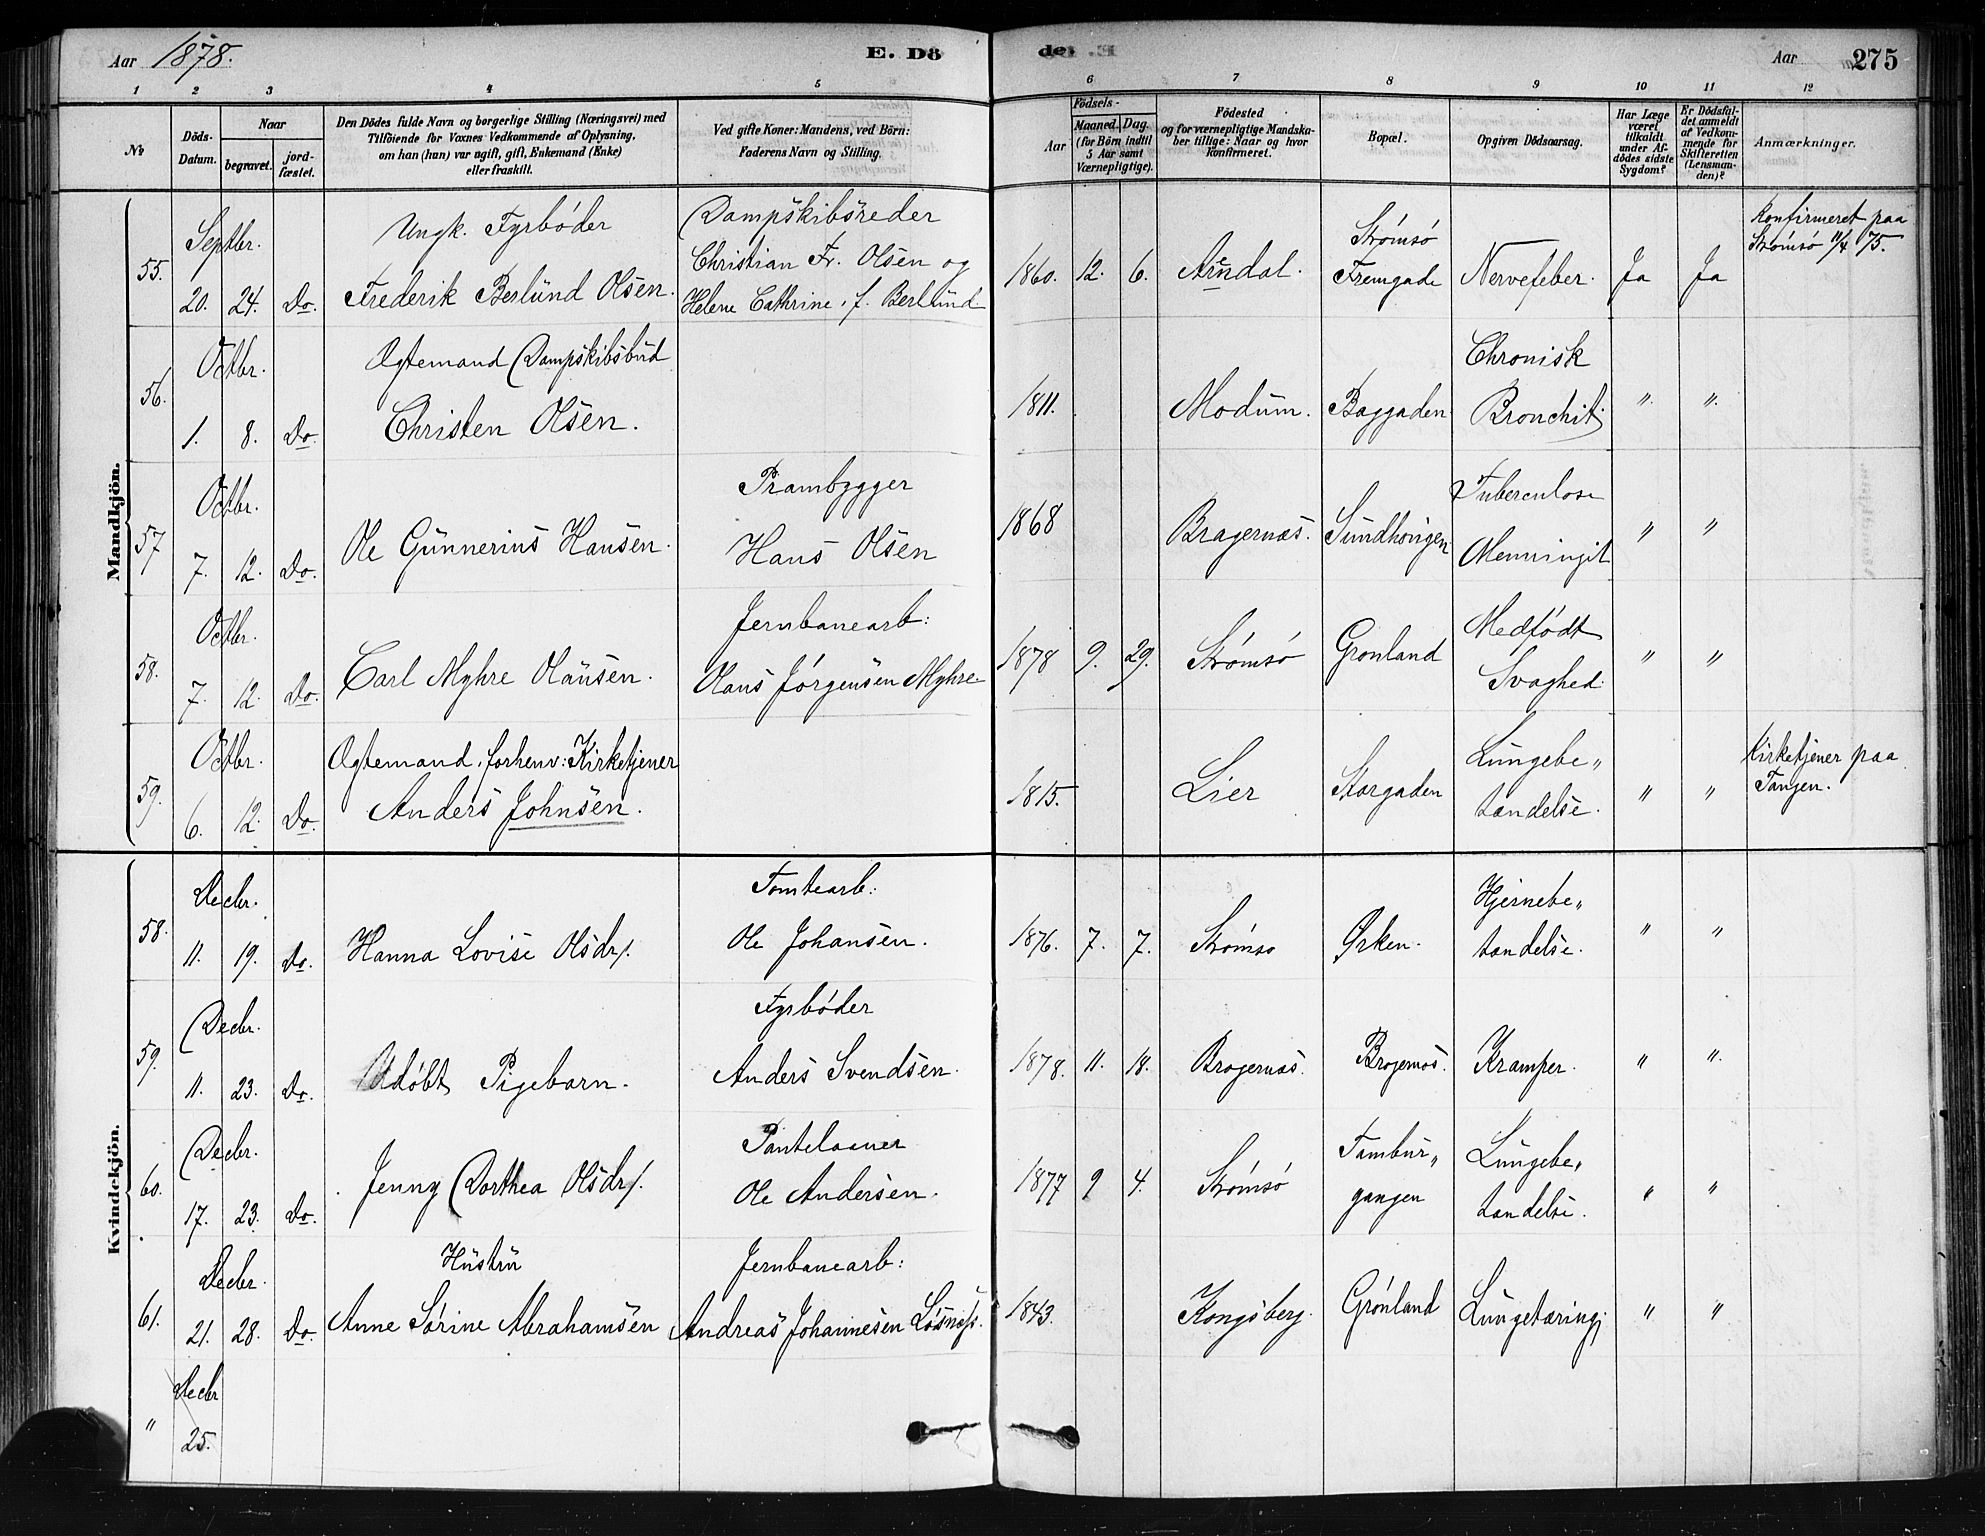 Aar 1878.
E. Dö
de.
Aar
275
1 2 3 4 5 6 7 8 9 10 11 12
No
Döds-Datum.
Naar
begravet.
jord-fæstet.
Den Dödes fulde Navn og borgerlige Stilling (Næringsvei) med
Tilföiende for Voxnes Vedkommende af Oplysning,
om han (hun) var ugift, gift, Enkemand (Enke)
eller fraskilt.
Ved gifte Koner: Mandens, ved Börn:
Faderens Navn og Stilling.
Födsels-
Aar
Maaned. Dag.
(for Börn indtil
5 Aar samt
Værnepligtige).
Födested
og for værnepligtige Mandska-
ber tillige: Naar og hvor
konfirmeret.
Bopæl.
Opgiven Dödsaarsag.
Har Læge
været
tilkaldt
under Af-
dödes sidste
Sygdom?
Er Dödsfal-
det anmeldt
af Vedkom-
mende for
Skifteretten
(Lensman-
den)?
Anmærkninger.
Mandkjön.
55. Septbr. 20. 24. Do.
Ungk. Fyrbøder
Frederik Berlund Olsen.
Dampskibsreder
Christian Fr. Olsen og
Helene Cathrine, f. Berlund
1860. 12. 6. Arendal.
Strømsø
Fremgade
Nervefeber. Ja Ja
Konfirmeret paa
Strømsø 11/4 75.
56. Octbr. 1. 8. Do.
Ægtemand Dampskibsbud
Christen Olsen.
1811. Modum. Baggaden
Chronisk
Bronchit. " "
57 Octbr. 7. 12. Do.
Ole Gunnerius Hansen.
Prambygger
Hans Olsen
1868 Bragernæs.
Tuberculose
Menningit " "
58. Octbr. 7. 12. Do.
Carl Myhre Hansen.
Jernbanearb:
Hans Jørgensen Myhre
1878 9. 29. Strømsø Grønland
Medfødt
Svaghed. " "
59. Octbr. 6. 12. Do.
Ægtemand, forhenv: Kirketjener
Anders Johnsen.
1815. Lier Storgaden
Lungebe„
tændelse. " "
Kirketjener paa
Tangen.
Kvindekjön.
58. Decbr. 11. 19. Do.
Hanna Lovise Olsdr/.
Tomtearb:
Ole Johansen.
1876. 7. 7. Strømsø Ørken.
Hjernebe„
tændelse. " "
59. Decbr. 11. 23. Do.
Udøbt Pigebarn.
Fyrbøder
Anders Svendsen.
1878. 11. 18. Bragernæs. Bragernæs. Kramper. " "
60. Decbr. 17. 23. Do.
Jenny Dorthea Olsdr/.
Pantelaaner
Ole Andersen.
1877 9 4. Strømsø
Tambur„
gangen
Lungebe„
tændelse. " "
61. Decbr. 21. 28. Do.
Hustru
Anne Sørine Abrahamsen
Jernbanearb:
Andreas Johannesen Løsnæs.
1843. Kongsberg. Grønland Lungetæring. " "
" Decbr 25.